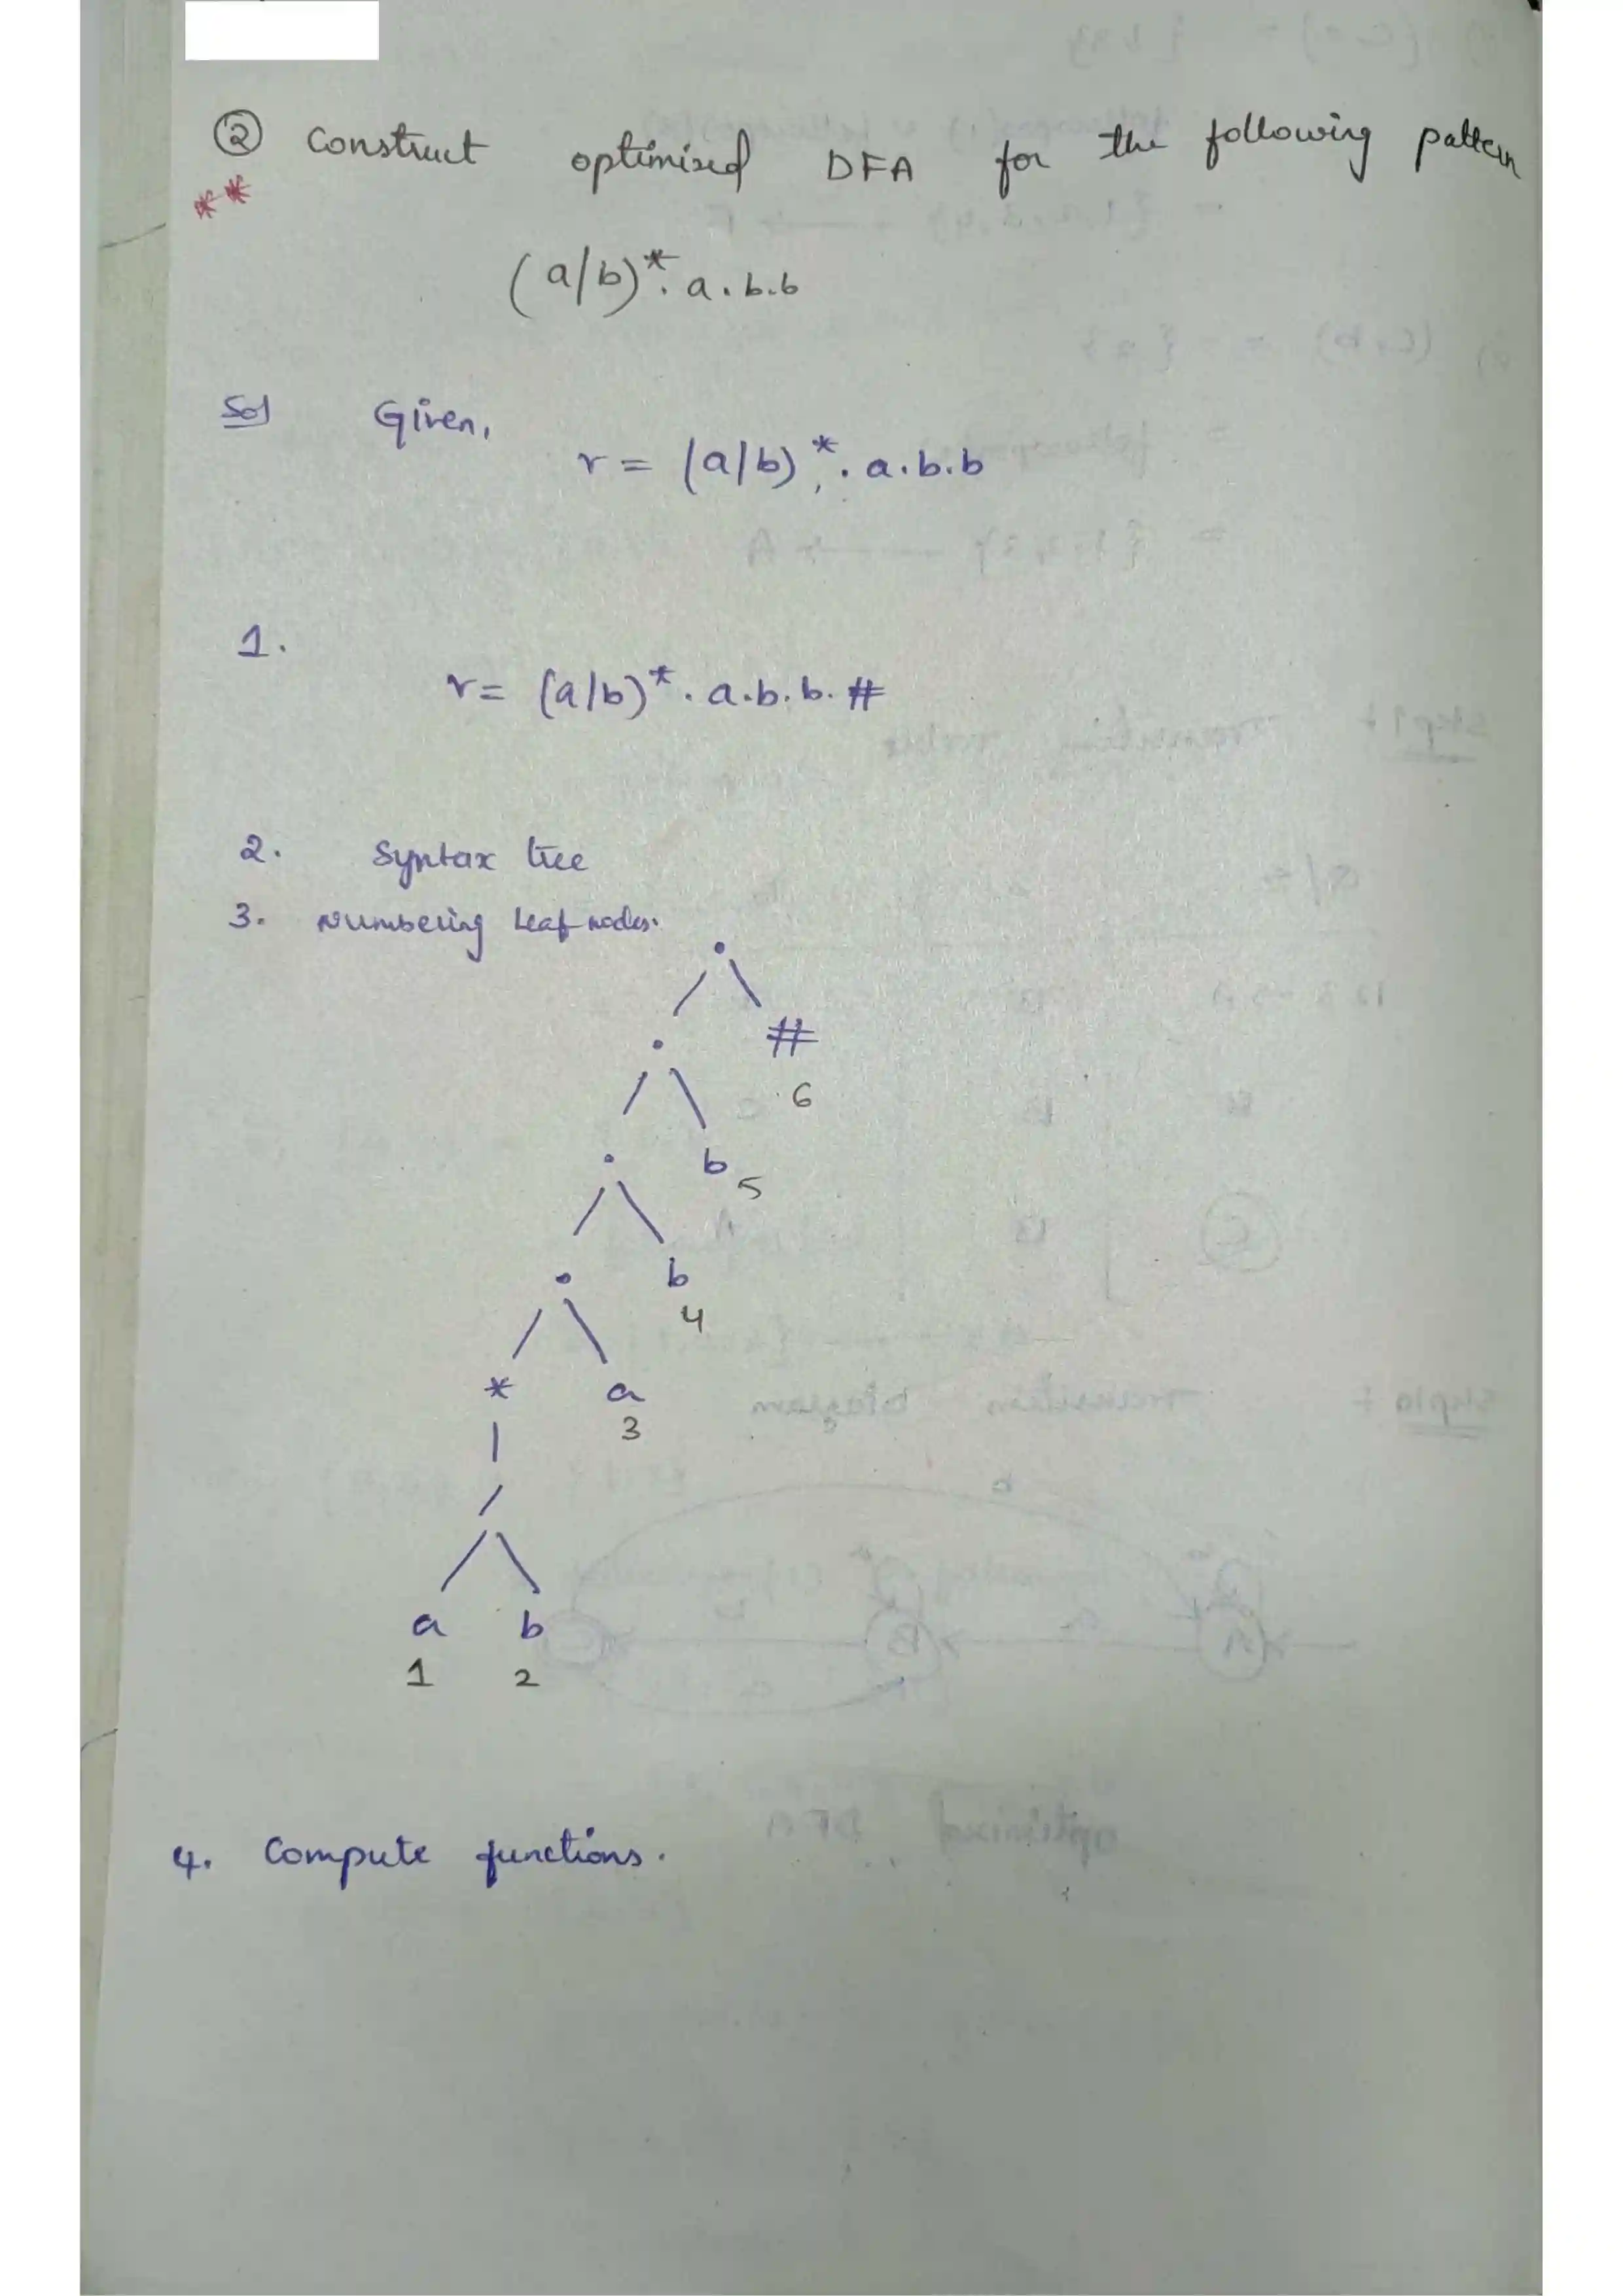 ② Construct optimised DFA for the following pattern
**
(a/b)*. a. b.b
Sol Given,
r = (a/b)*. a.b.b
1.
r= (a/b)*. a.b.b. #
2. Syntax tree
3. Numbering Leaf nodes.
.
. #
6
. b
5
. b
4
* a
3
/
a b
1 2
4. Compute functions.